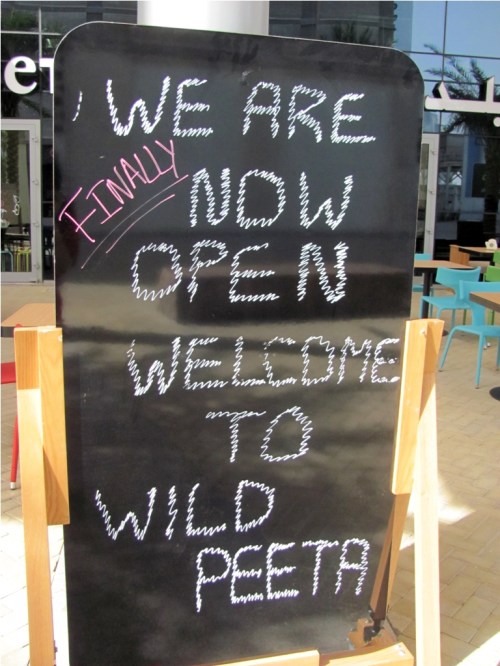 WE ARE
FINALLY NOW
OPEN
WELCOME
TO
WILD
PEETA